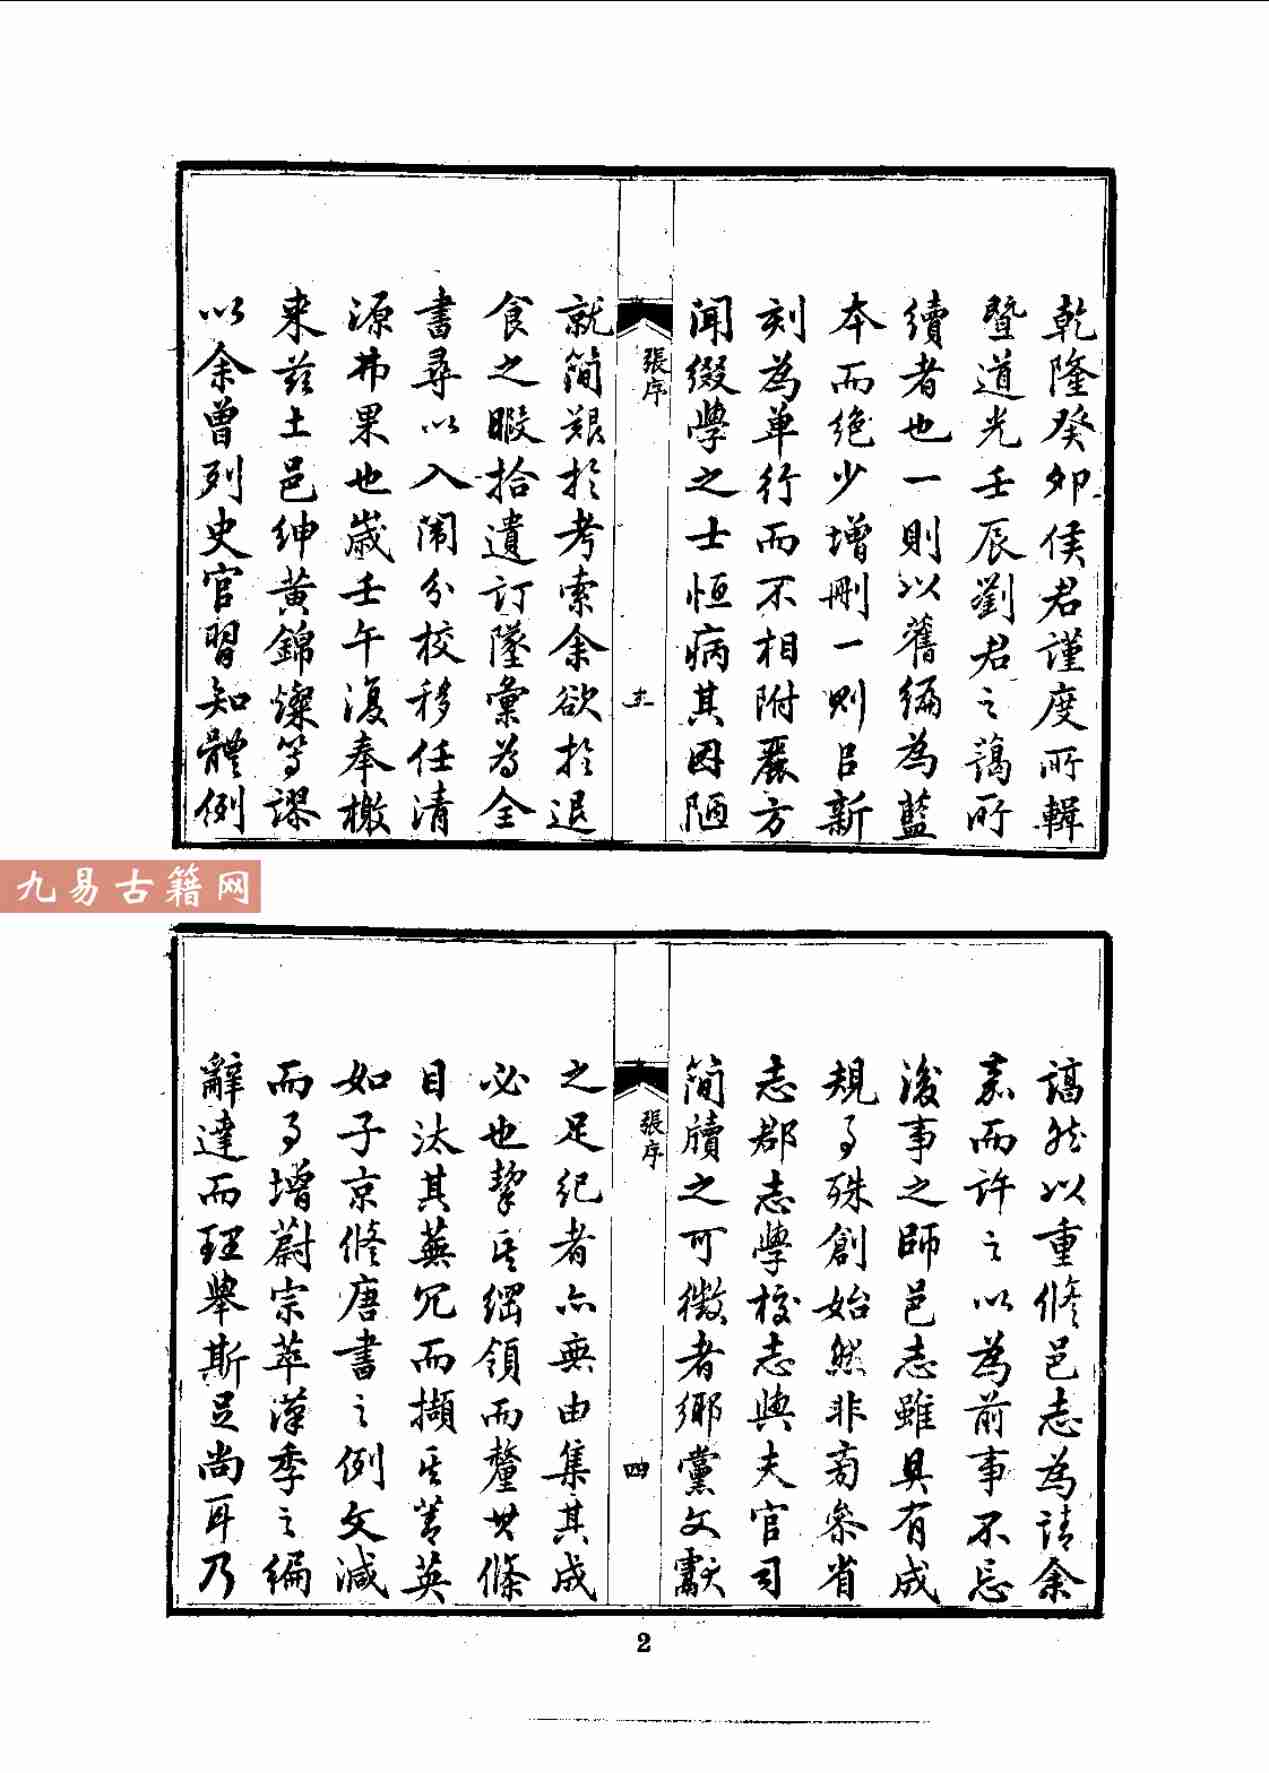 乾隆癸卯侯君謹度所輯
暨道光壬辰劉君之藹所
續者也一則以舊編為藍
本而絶少增刪一則另新
刻為單行而不相附麗方
聞綴學之士恒病其因陋
張序
就簡艱於考索余欲於退
食之暇拾遺訂墜彙為全
書尋以入闈分校移任清
源弗果也歲壬午復奉檄
来茲土邑紳黃錦燦等謬
以余曾列史官習知體例
九易古籍网
謁然以重修邑志為請余
嘉而許之以為前事不忘
後事之師邑志雖具有成
規事殊創始然非旁參省
志郡志學校志與夫官司
簡牘之可徵者鄉黨文獻
張序
四
之足紀者亦無由集其成
必也挈其綱領而釐其條
目汰其蕪冗而擷其菁英
如子京修唐書之例文減
而事增蔚宗萃漢季之編
辭達而理舉斯足尚耳乃
2